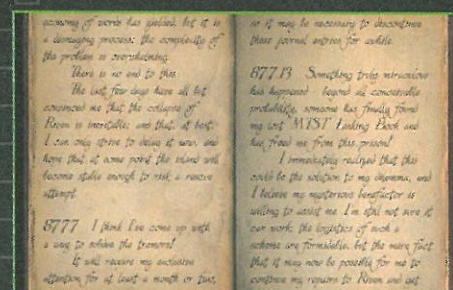 economy of words has yielded, but it is
a demanding process: the complexity of
the problem is overwhelming.
There is no end to this.
The last few days have all but
convinced me that the collapse of
Riven is inevitable; and that, at best,
I can only strive to delay it now, and
hope that at some point the island will
become stable enough to risk a rescue
attempt.
87.7.7 I think I've come up with
a way to solve the tremors!
It will require my exclusive
attention for at least a month or two,
so it may be necessary to discontinue
these journal entries for awhile.
87.7.13 Something truly miraculous
has happened - beyond all conceivable
probability, someone has finally found
my lost MYST Linking Book and
has freed me from this prison!
I immediately realized that this
could be the solution to my dilemma, and
I believe my mysterious benefactor is
willing to assist me. I'm still not sure it
can work; the logistics of such a
scheme are formidable, but the mere fact
that it may now be possible for me to
continue my repairs to Riven and get